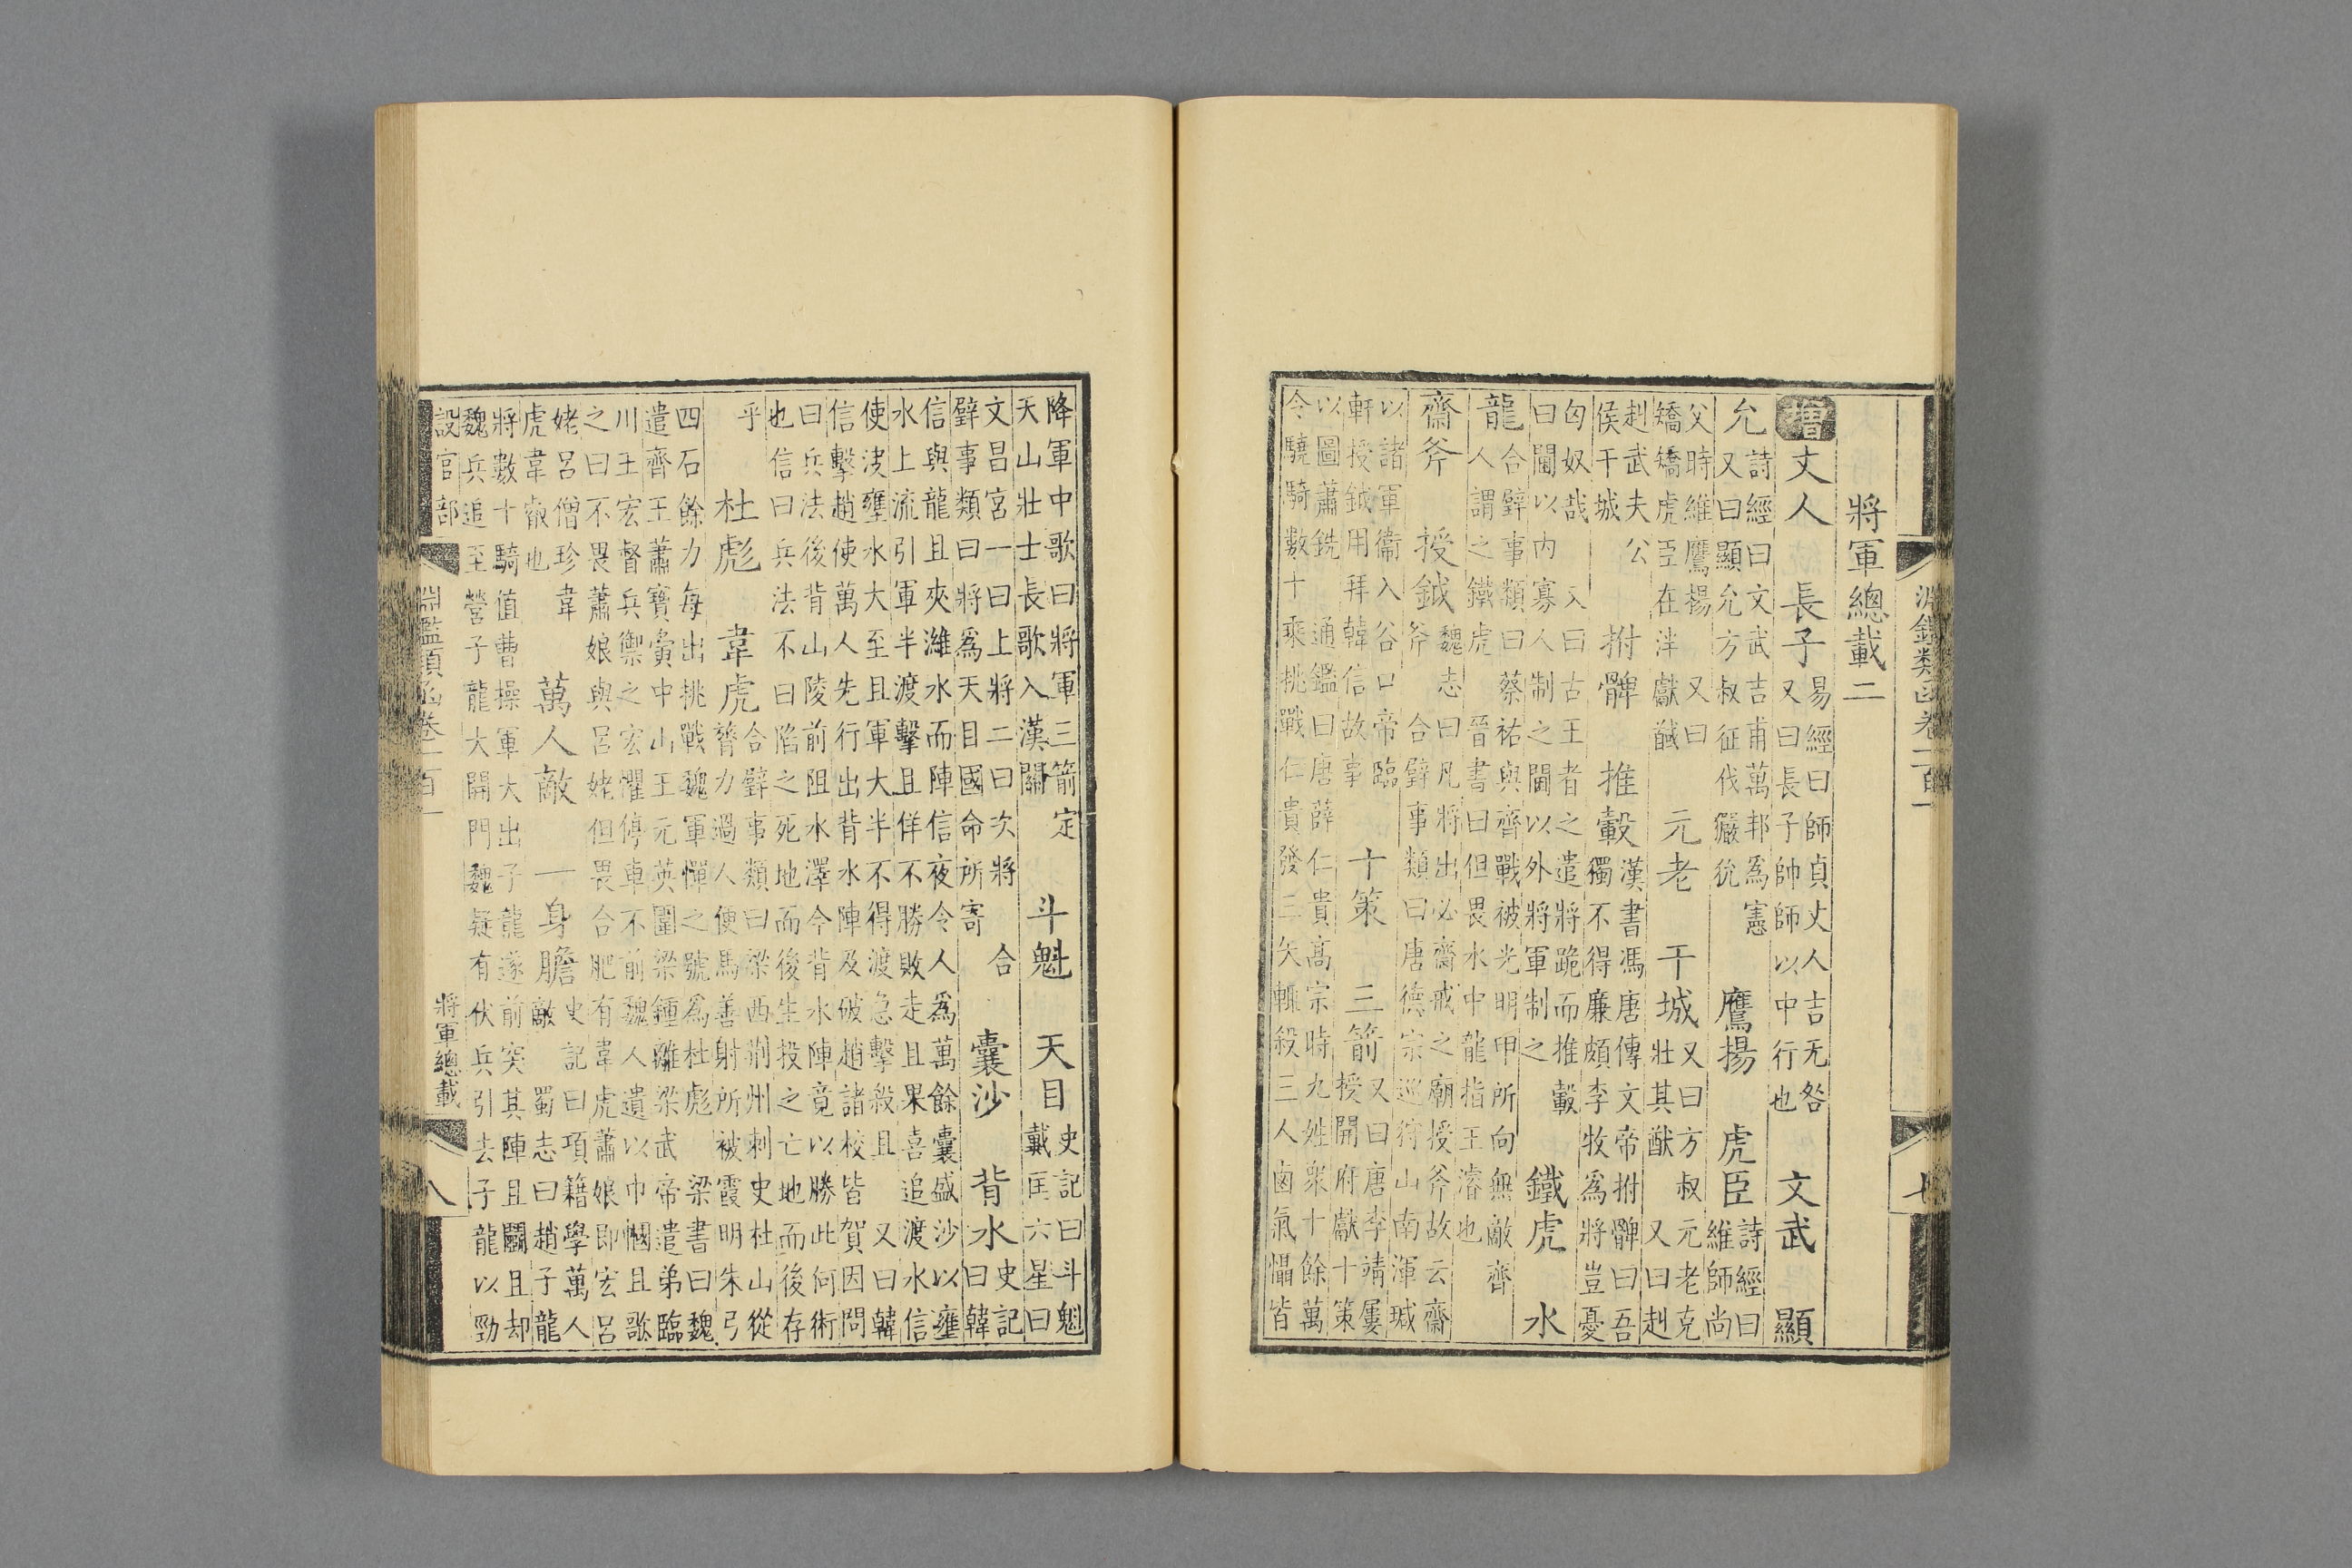 淵鑑類函卷二百一 七
將軍總載二
增丈人 長子 易經曰師貞丈人吉无咎又曰長子帥師以中行也 文武 顯
允 詩經曰文武吉甫萬邦爲憲又曰顯允方叔征伐玁狁 鷹揚 虎臣 詩經曰維師尚
父時維鷹揚 又曰矯矯虎臣在泮獻馘 元老 干城 又曰方叔元老克壯其猷 又曰赳
赳武夫公侯干城 拊髀 推轂 漢書馮唐傳文帝拊髀曰吾獨不得廉頗李牧爲將豈憂
匈奴哉 又曰古王者之遣將跪而推轂曰閫以內寡人制之閫以外將軍制之 鐵虎 水
龍 合璧事類曰蔡祐與齊戰被光明甲所向無敵齊人謂之鐵虎 晉書曰但畏水中龍指王濬也
齋斧 授鉞 魏志曰凡將出必齋戒之廟授斧故云齋斧 合璧事類曰唐德宗巡狩山南渾瑊
以諸軍衞入谷口帝臨軒授鉞用拜韓信故事 十策 三箭 又曰唐李靖屢授開府獻十策
以圖蕭銑 通鑑曰唐薛仁貴高宗時九姓衆十餘萬令驍騎數十乘挑戰仁貴發三矢輒殺三人鹵氣懾皆
降軍中歌曰將軍三箭定天山壯士長歌入漢關 斗魁 天目 史記曰斗魁戴匡六星曰
文昌宮一曰上將二曰次將 合璧事類曰將爲天目國命所寄 囊沙 背水 史記曰韓
信與龍且夾濰水而陣信夜令人爲萬餘囊盛沙以壅水上流引軍半渡擊且佯不勝敗走且果喜追渡水信
使決壅水大至且軍大半不得渡急擊殺且 又曰韓信擊趙使萬人先行出背水陣及破趙諸校皆賀因問
曰兵法後背山陵前阻水澤今背水陣竟以勝此何術也信曰兵法不曰陷之死地而後生投之亡地而後存
乎 杜彪 韋虎 合璧事類曰梁西荆州刺史杜山從膂力過人便馬善射所被霞明朱弓
四石餘力每出挑戰魏軍憚之號爲杜彪 梁書曰魏遣齊王蕭寶夤中山王元英圍梁鍾離梁武帝遣弟臨
川王宏督兵禦之宏懼停車不前魏人遺以巾幗且歌之曰不畏蕭娘與呂姥但畏合肥有韋虎蕭娘即宏呂
姥呂僧珍韋虎韋叡也 萬人敵 一身膽 史記曰項籍學萬人敵 蜀志曰趙子龍
將數十騎值曹操軍大出子龍遂前突其陣且鬬且却魏兵追至營子龍大開門魏疑有伏兵引去子龍以勁
設官部 淵鑑類函卷二百一 將軍總載 八